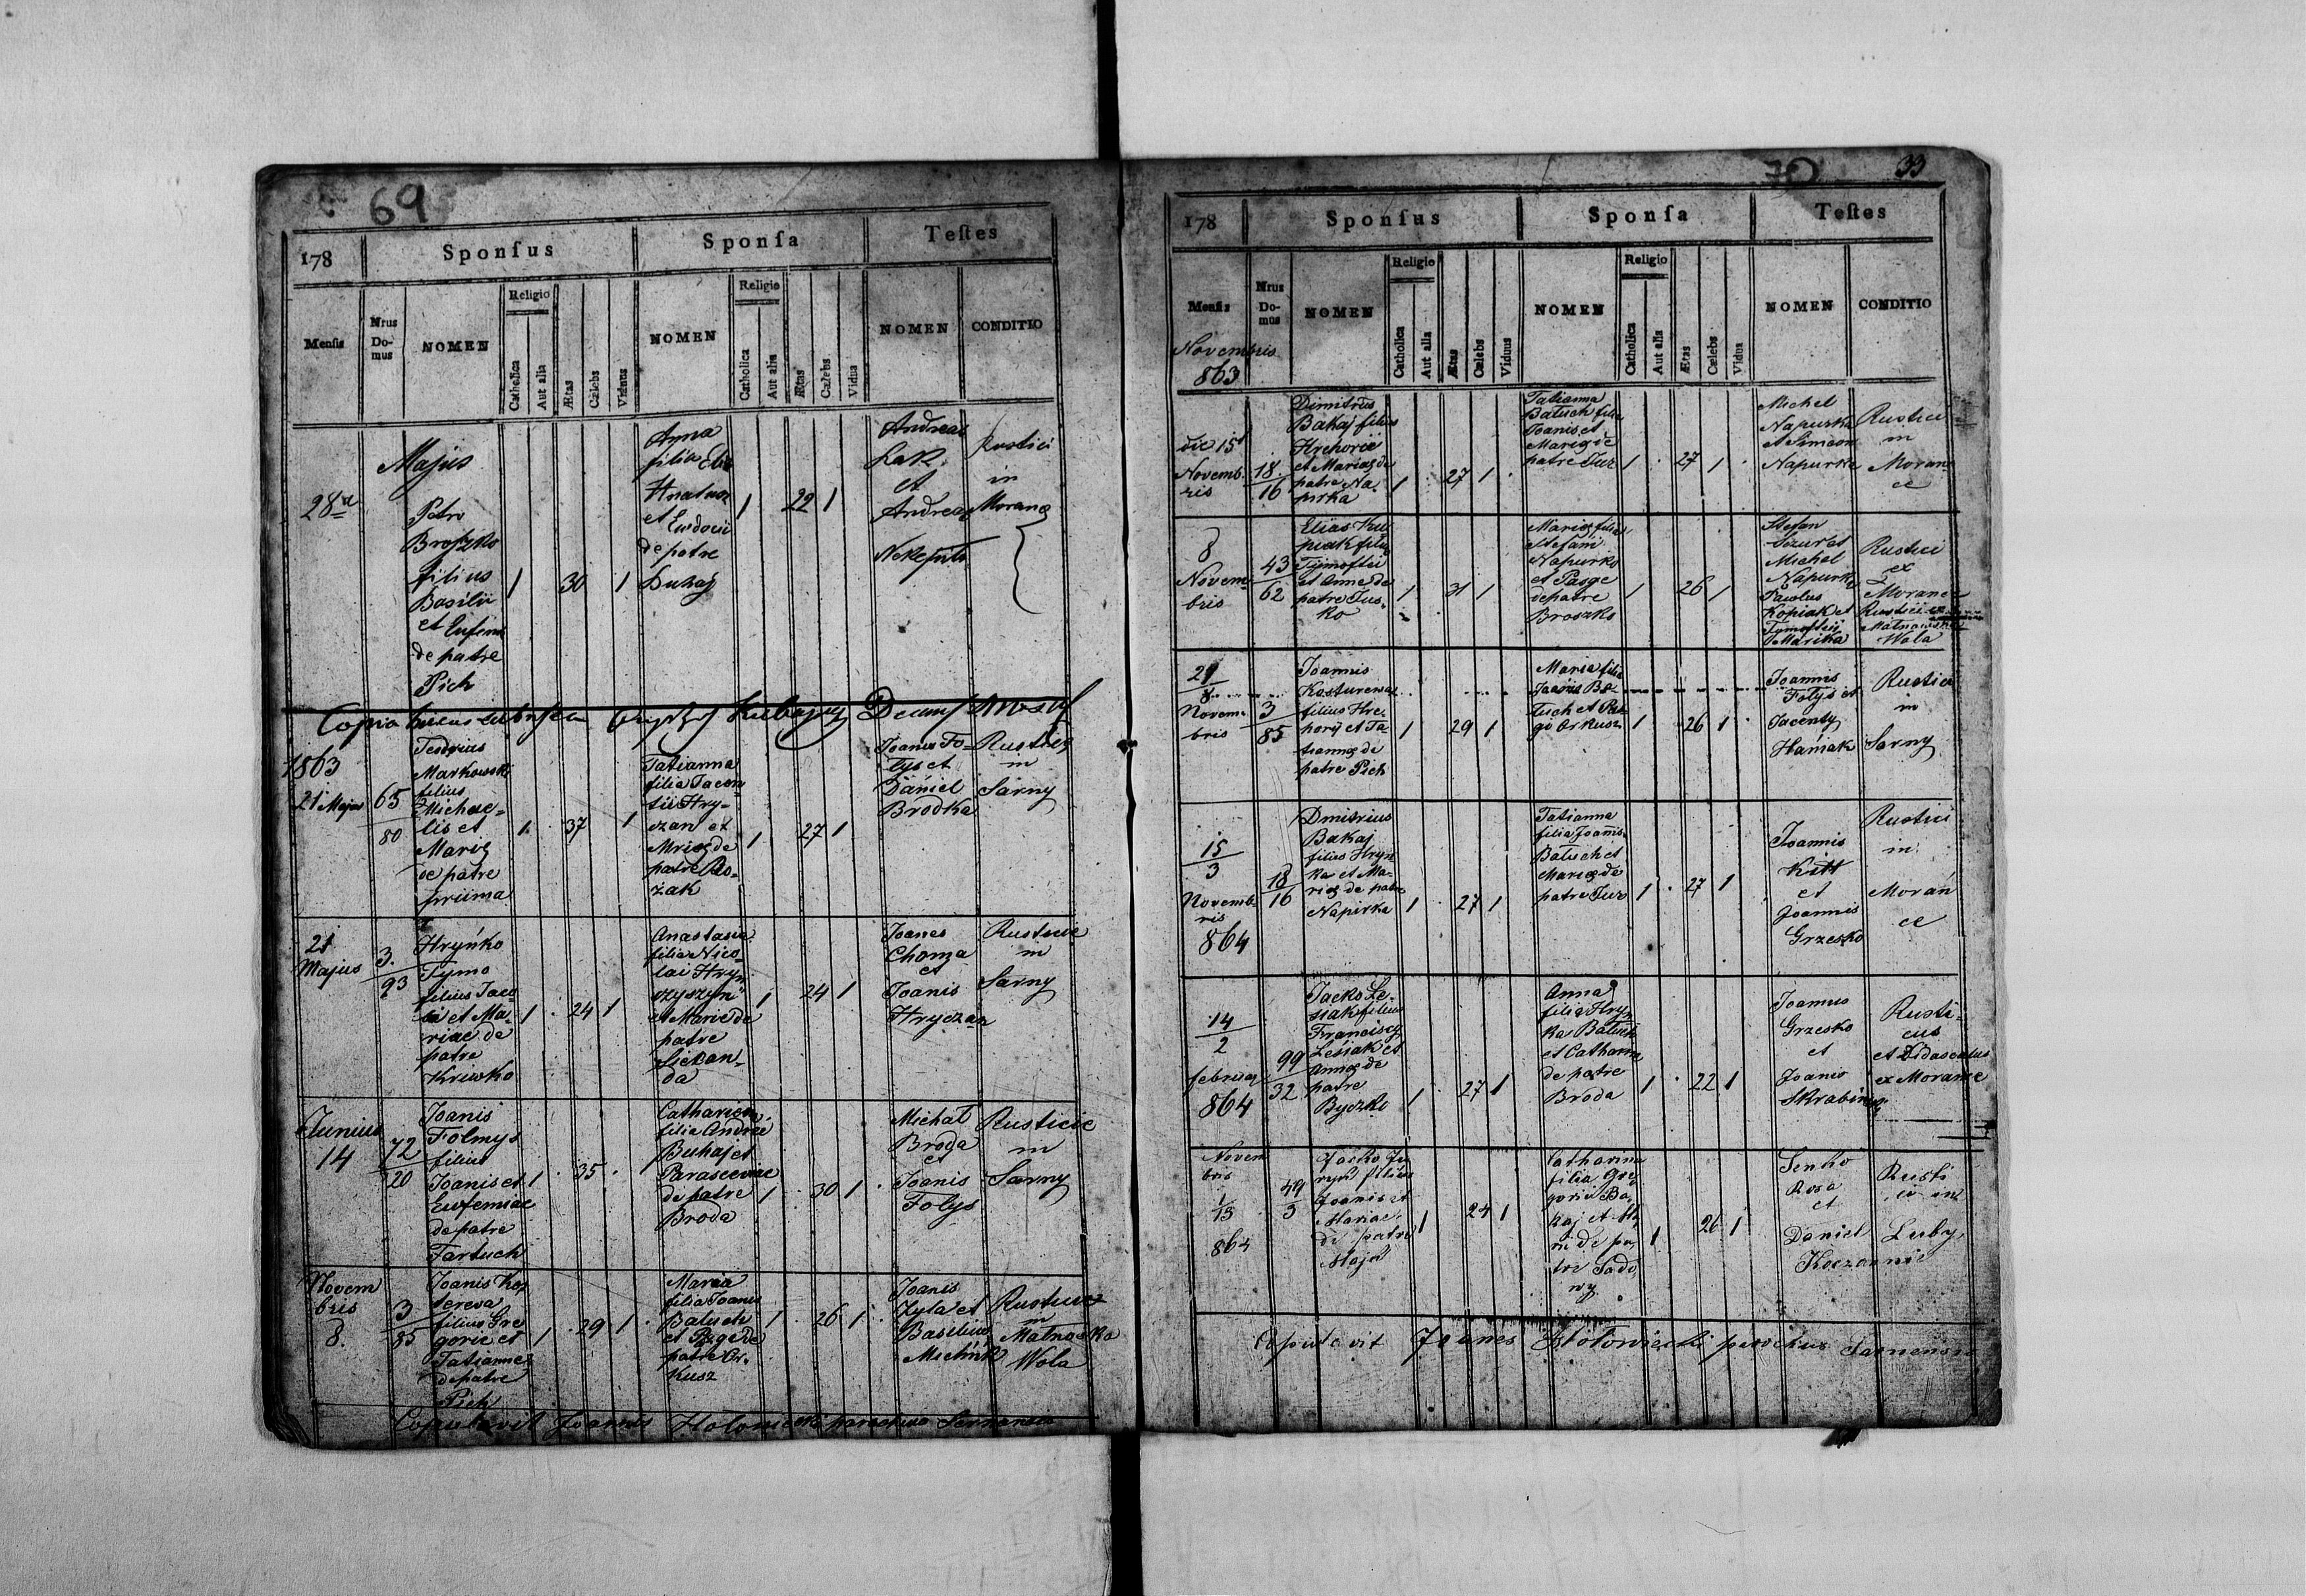 69
178 Sponſus Sponſa Teſtes
Menſis Nrus Domus NOMEN Religio Catholica Aut alia Ætas Cælebs Viduus NOMEN Religio Catholica Aut alia Ætas Cælebs Vidua NOMEN CONDITIO
Majus
28
Petro
Broszko
filius
Basilii
et Eufem
de patre
Pich
1 30 1
Anna
filia
et Eudocii
de patre
Duhaj
1 22 1
Andreas
Łak
et
Andreas
Rustici
in
Morance
Copia
1863
21 Majus
65
80
Teodorius
Markowski
filius
Michae-
lis et
Mariæ
de patre
priima
1 37 1
Tatianna
filia Jacen-
tii Hry-
czan et
Mriæ de
patre
1 27 1
Joanis Fo-
lys et
Daniel
Brodka
Rustici
in
Sarny
21
Majus
3.
93
Hryńko
Tymo
filius Jaco
bi et Ma-
riae de
patre
Kriwko
1 24 1
Anastasia
filia Nico-
lai Hryn
czyszyn
et Marie de
patre
1 24 1
Joanes
Choma
et
Joanis
Hryczan
Rusticie
in
Sarny
Junius
14
72
20
Joanis
Folmys
filius
Joanis et
Eufemiae
de patre
Fartuch
1 35
Catharina
filia Andrei
Buhaj et
Parasceviae
de patre
Broda
1 30 1
Michał
Broda
et
Joanis
Folys
Rusticie
in
Sarny
Novem
bris
8.
3
85
Joanis Kos
tereva
filius Gre
gorie et
Tatianne
de patre
Pich
1 29 1
Maria
filia Joanis
Batuch
et Page de
patre Or-
kusz
1 26 1
Joanis
Zyla et
Basilius
Michńik
in
Matnaska
Wola
Copulavit Joannes Hołoniecki parochus Sarnensis
70 33
178 Sponſus Sponſa Teſtes
Menſis Nrus Domus NOMEN Religio Catholica Aut alia Ætas Cælebs Viduus NOMEN Religio Catholica Aut alia Ætas Cælebs Vidua NOMEN CONDITIO
Novembris
863
die 15
Novemb
ris
18
16
Dimitrus
Bakaj filius
Hrehorie
et Mariæ de
patre Na-
pirka
1 27 1
Tatianna
Batuch filia
Joanis et
Mariæ de
patre Tur
1 27 1
Michel
Napurka
et Simeon
Napurka
Rustici
in
Moran
ce
8
Novem
bris
43
62
Elias Ku
piak filius
Tymoftei
et Anne de
patre Jus-
ko
1 31 1
Maria filia
Stefani
Napurko
et Page
de patre
Broszko
1 26 1
Stefan
Szur et
Michel
Napurka
Pawlus
Kopiak et
Tymoftii
Marika
Rustici
ex
Morance
Rustici ex
Wola
21
8
Novem-
bris
3
85
Joannis
Kosturewa
filius Hre-
horij et Ta-
tiannæ de
patre Pich
1 29 1
Maria filia
Joanis Ba-
tuch et Pa-
ge Orkusz
1 26 1
Joannis
Folys et
Jacenty
Haniak
Rustici
in
Sarny
15
3
Novemb
ris
864
18
16
Dmitrius
Bakaj
filius Hryń
ka et Ma-
riæ de patre
Napirka
1 27 1
Tatianna
filia Joannis
Batuch et
Mariæ de
patre Tur
1 27 1
Joannis
Kitt
et
Joannis
Grzesko
Rustici
in
Moran
ce
14
2
februar
864
99
32
Jacko Le-
siak filius
Francisy
Lesiak et
Annæ de
patre
Byczko
1 27 1
Anna
filia Hryń
ka Batuch
et Catharina
de patre
Broda
1 22 1
Joannis
Grzesko
et
Joanis
Skrabinski
Rusti-
cus
et Didascalus
ex Morance
Novem
bris
1
13
864
49
3
Jacko Ju
ryk filius
Joanis et
Mariae
de patre
Maja
1 24 1
Catharina
filia Gre
gorii Ba
kaj et Ma
ri de pa
tre Sado
wy
1 26 1
Senko
Rosa
et
Daniel
Rusti
ci in
Luby
Copulavit Joanes Hołoniecki parochus Sarnensis